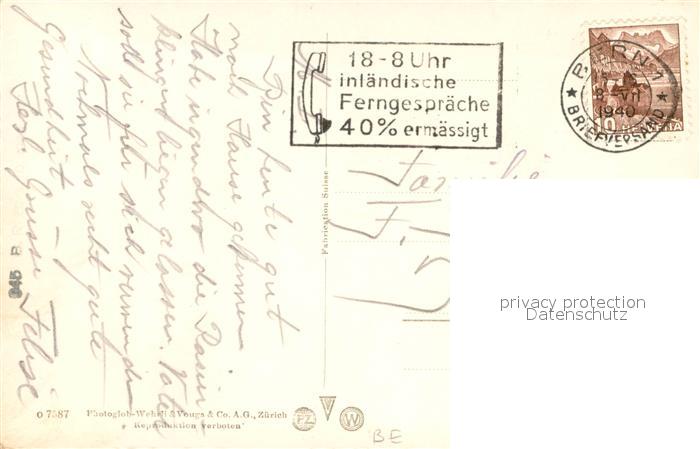 18-8 Uhr
inländische
Ferngespräche
40% ermässigt
BERN 1
1940
BRIEFVERSAND
10 HELVETIA
Bin heute gut
nach Hause gekommen
Habe irgendwo die Rasier
klingen liegen gelassen. Vater
soll sie für sich verwenden
Nochmals recht gute
Gesundheit
Herzl. Grüsse Felix
Familie
Fabrication Suisse
privacy protection
Datenschutz
O 7587 Photoglob-Wehrli & Vouga & Co. A.G., Zürich
Reproduktion verboten
PZ V W
BE